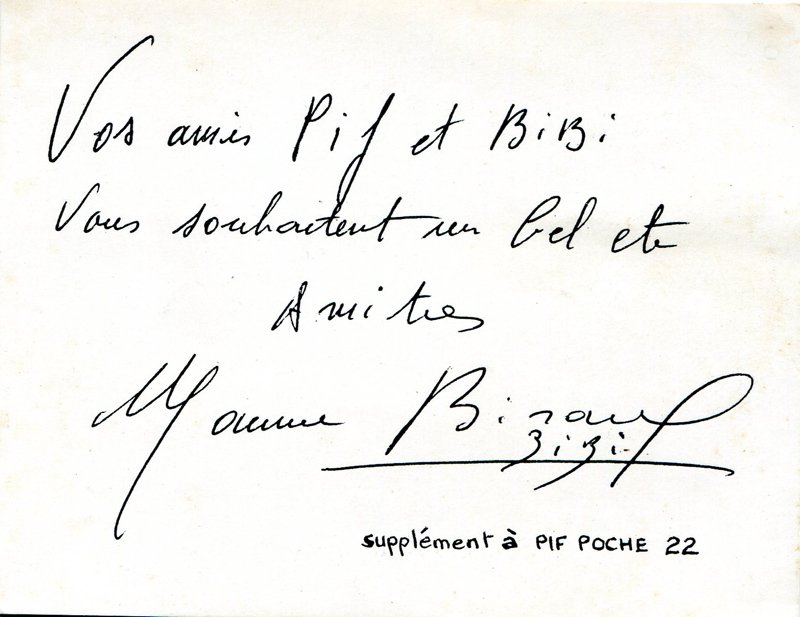 Vos amis Pif et BiBi
Vous souhaitent un bel ete
Amities
Maurice Biraud
BiBi
supplément à PIF POCHE 22